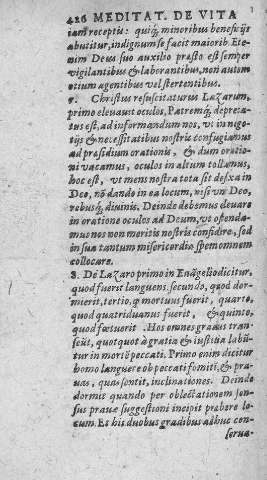 426 MEDITAT. DE VITA
iam receptis: quisq́; minoribus beneficijs
abutitur, indignum se facit maiorib. Ete-
nim Deus suo auxilio præsto est semper
vigilantibus & laborantibus, non autem
otium agentibus vel stertentibus.
7. Christus resuscitaturus Lazarum,
primo eleuauit oculos, Patremq́; depreca-
tus est, ad informandum nos, vt in nego-
tijs & necessitatibus nostris confugiamus
ad præsidium orationis, & dum oratio-
ni vacamus, oculos in altum tollamus,
hoc est, vt mens nostra tota sit defixa in
Deo, nõ dando in ea locum, nisi vni Deo,
rebusq́; diuinis. Deinde debemus eleuare
in oratione oculos ad Deum, vt ostenda-
mus nos non meritis nostris considere, sed
in sua tantum misericordia spem omnem
collocare.
8. De Lazaro primo in Euãgelio dicitur,
quod fuerit languens, secundo, quod dor-
mierit, tertio, q mortuus fuerit, quarto,
quod quatriduanus fuerit, & quinto,
quod fœtuerit. Hos omnes gradus tran-
seũt, quotquot à gratia & iustitia labũ-
tur in mortē peccati. Primo enim dicitur
homo languere ob peccati fomitē, & pra-
uas, quas sentit, inclinationes. Deinde
dormit quando per oblectationem sen-
sus prauæ suggestioni incipit præbere lo-
cum. Ex his duobus gradibus adhuc con-
seruæ-